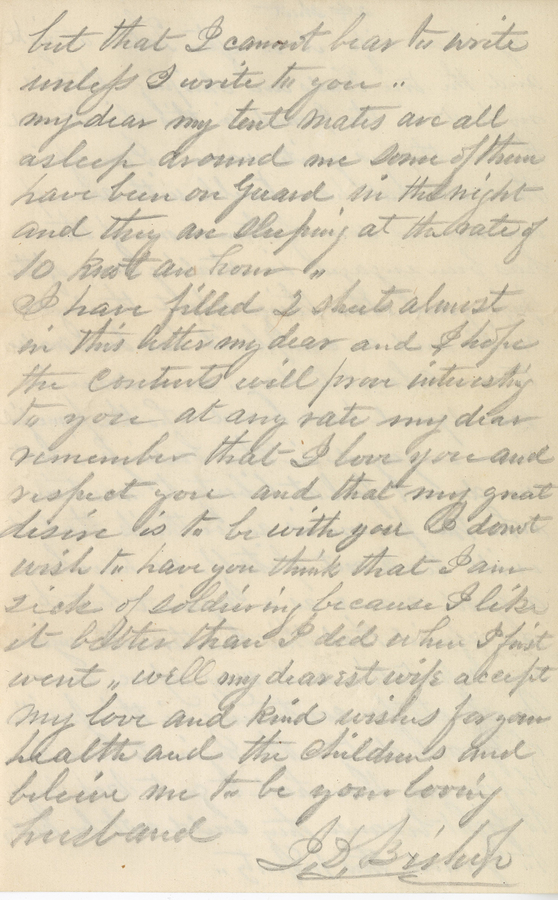 but that I cannot bear to write
unless I write to you "
my dear my tent mates are all
asleep around me some of them
have been on Guard in the night
and they are sleeping at the rate of
10 knot an hour "
I have filled 2 sheets almost
in this letter my dear and I hope
the contents will prove interesting
to you at any rate my dear
remember that I love you and
respect you and that my great
desire is to be with you I dont
wish to have you think that I am
sick of soldiering because I like
it better than I did when I first
went " well my dearest wife accept
my love and kind wishes for your
health and the childrens and
beleive me to be your loving
husband
J. D. Bishop